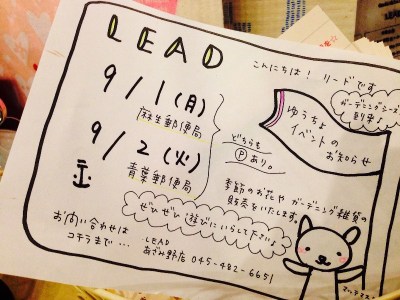 LEAD
こんにちは! リードです
ガーデニングシーズン
到来♪
9/1(月)
麻生郵便局
9/2(火)
青葉郵便局
どちらも
Ⓟあり。
ゆうちょ
イベントの
お知らせ
季節のお花や ガーデニング雑貨の
販売をいたします。
ぜひぜひ 遊びにいらして下さい♪
お問い合わせは
コチラまで…
LEAD
あざみ野店 045-482-6651